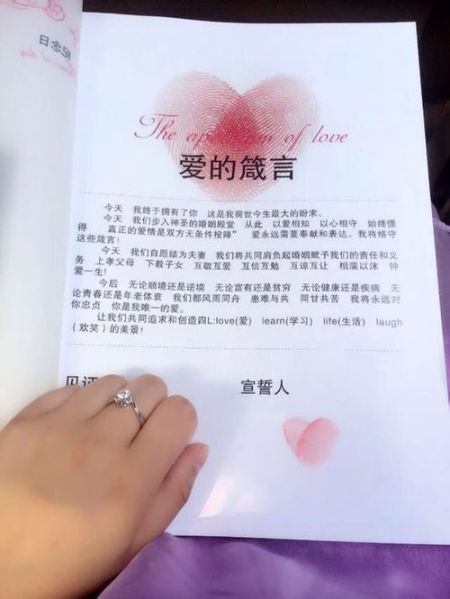 纪念日
The of love
爱的箴言
今天 我终于拥有了你 这是我前世今生最大的盼求。
今天 我们步入神圣的婚姻殿堂 从此 以爱相知 以心相守 始终懂
得 真正的爱情是双方无条件投降” 爱永远需要奉献和表达。我将恪守
这些箴言!
今天 我们自愿结为夫妻 我们将共同肩负起婚姻赋予我们的责任和义
务 上孝父母 下教子女 互敬互爱 互信互勉 互谅互让 相濡以沫 钟
爱一生!
今后 无论顺境还是逆境 无论富有还是贫穷 无论健康还是疾病 无
论青春还是年老体衰 我们都风雨同舟 患难与共 同甘共苦 我将永远对
你忠贞 你是我唯一的爱。
让我们共同追求和创造四L:love(爱) learn(学习) life(生活) laugh
(欢笑)的美景!
见证 宣誓人